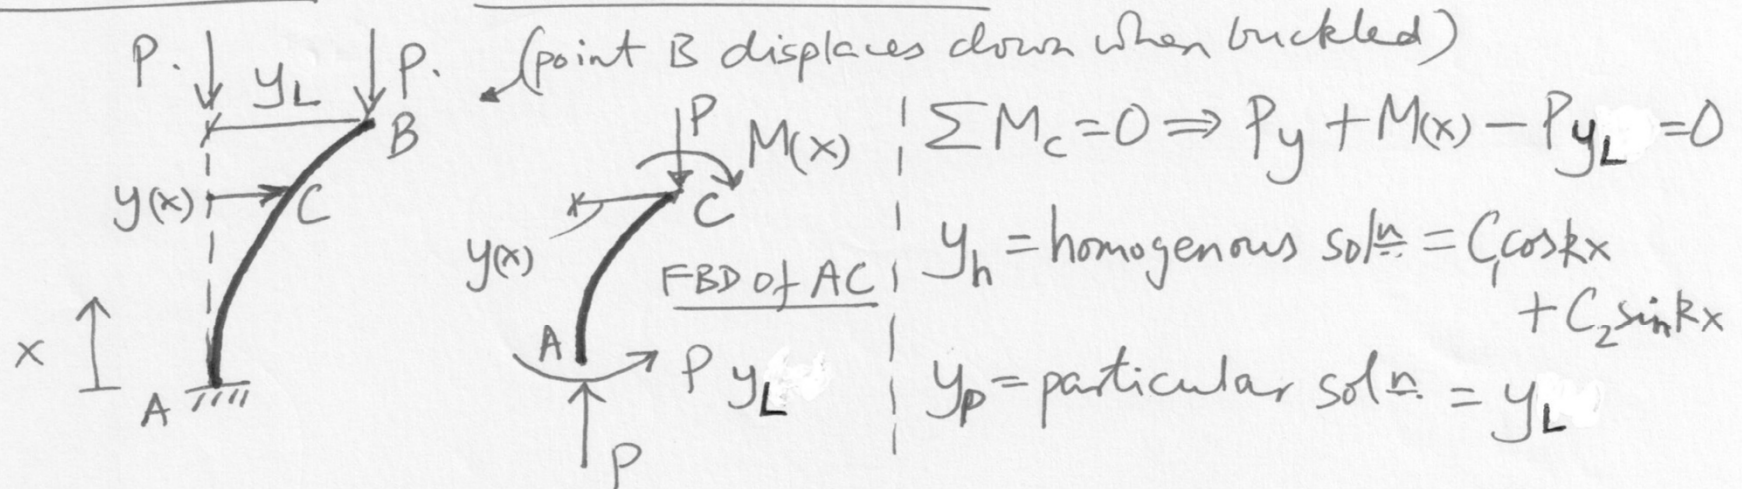 (point B displaces down when buckled)
P. y_L P.
B
y(x) C
x
A
P M(x)
C
y(x)
FBD of AC
A
P y_L
P
ΣM_c = 0 ⇒ Py + M(x) - Py_L = 0
y_h = homogenous soln = C_1 cos kx
+ C_2 sin kx
y_p = particular soln. = y_L